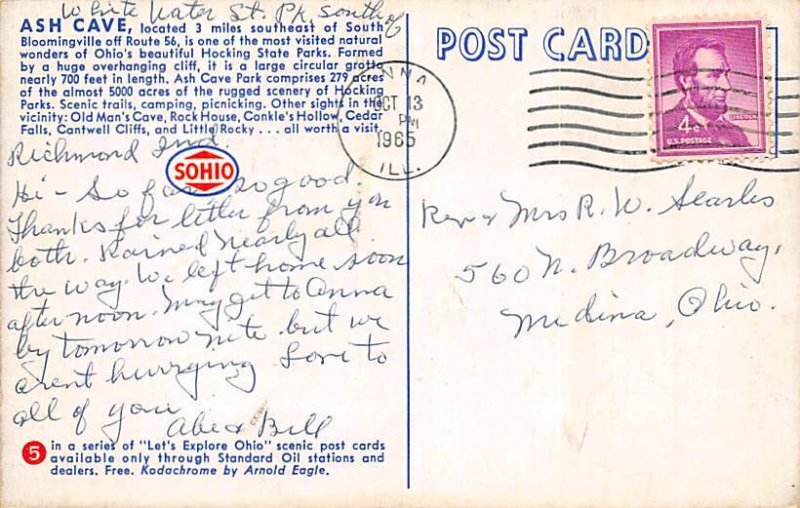 White Water St. Pk. south of
ASH CAVE, located 3 miles southeast of South
Bloomingville off Route 56, is one of the most visited natural
wonders of Ohio's beautiful Hocking State Parks. Formed
by a huge overhanging cliff, it is a large circular grotto
nearly 700 feet in length. Ash Cave Park comprises 279 acres
of the almost 5000 acres of the rugged scenery of Hocking
Parks. Scenic trails, camping, picnicking. Other sights in the
vicinity: Old Man's Cave, Rock House, Conkle's Hollow, Cedar
Falls, Cantwell Cliffs, and Little Rocky . . . all worth a visit.
Richmond Ind.
SOHIO
Hi - So far so good.
Thanks for letter from you
both. Rained nearly all
the way. We left home soon
after noon. May get to Anna
by tomorrow nite but we
arent hurrying Love to
all of you
Abe & Bill
5 in a series of "Let's Explore Ohio" scenic post cards
available only through Standard Oil stations and
dealers. Free. Kodachrome by Arnold Eagle.
POST CARD
ANNA
OCT 13
PM
1965
ILL.
LINCOLN
4¢
U.S. POSTAGE
Rev & Mrs R. W. Searles
560 N. Broadway,
Medina, Ohio.